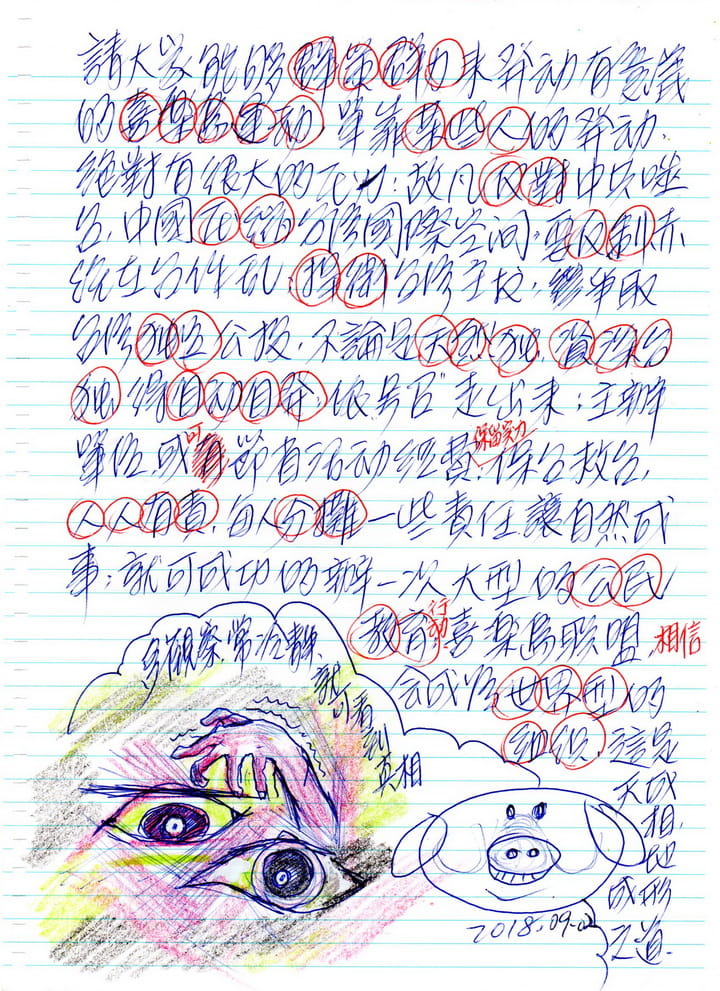 請大家能夠群策群力來發动有意義
的喜樂島運动單靠某些人的發动,
絕對有很大的压力;故凡反對中共
台,中國压縮台湾國際空間,要反制
統在台作乱;捍衛台湾主权,爭取
台湾独立公投,不論是天然独,資深台
独,緣自动自發,依号召"走出來;主辦
單位,或可節省活动經費,保台救台,
保留实力
人人有責,每人分攤一些責任讓自然成
事;就可成功的辦一次大型的公民
教育行动喜樂島联盟,相信
會成為世界型的
組织,這是
天成
相,地
成形
之道.
多觀察,常冷靜,
就可看到
真相
2018.09.02